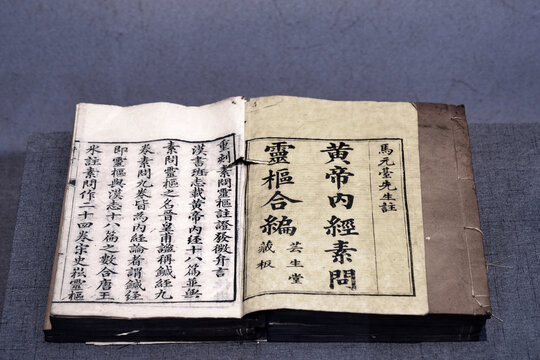 馬元臺先生註
黄帝内經素問
靈樞合編
芸生堂
藏板
重刻素問靈樞註證發微弁言
漢書班志載黄帝内經十八篇並無
素問靈樞之名晉皇甫謐稱鍼經九
卷素問九卷皆爲内經論者謂鍼經
即靈樞與漢志十八篇之數合唐王
氷註素問作二十四卷宋史崧靈樞